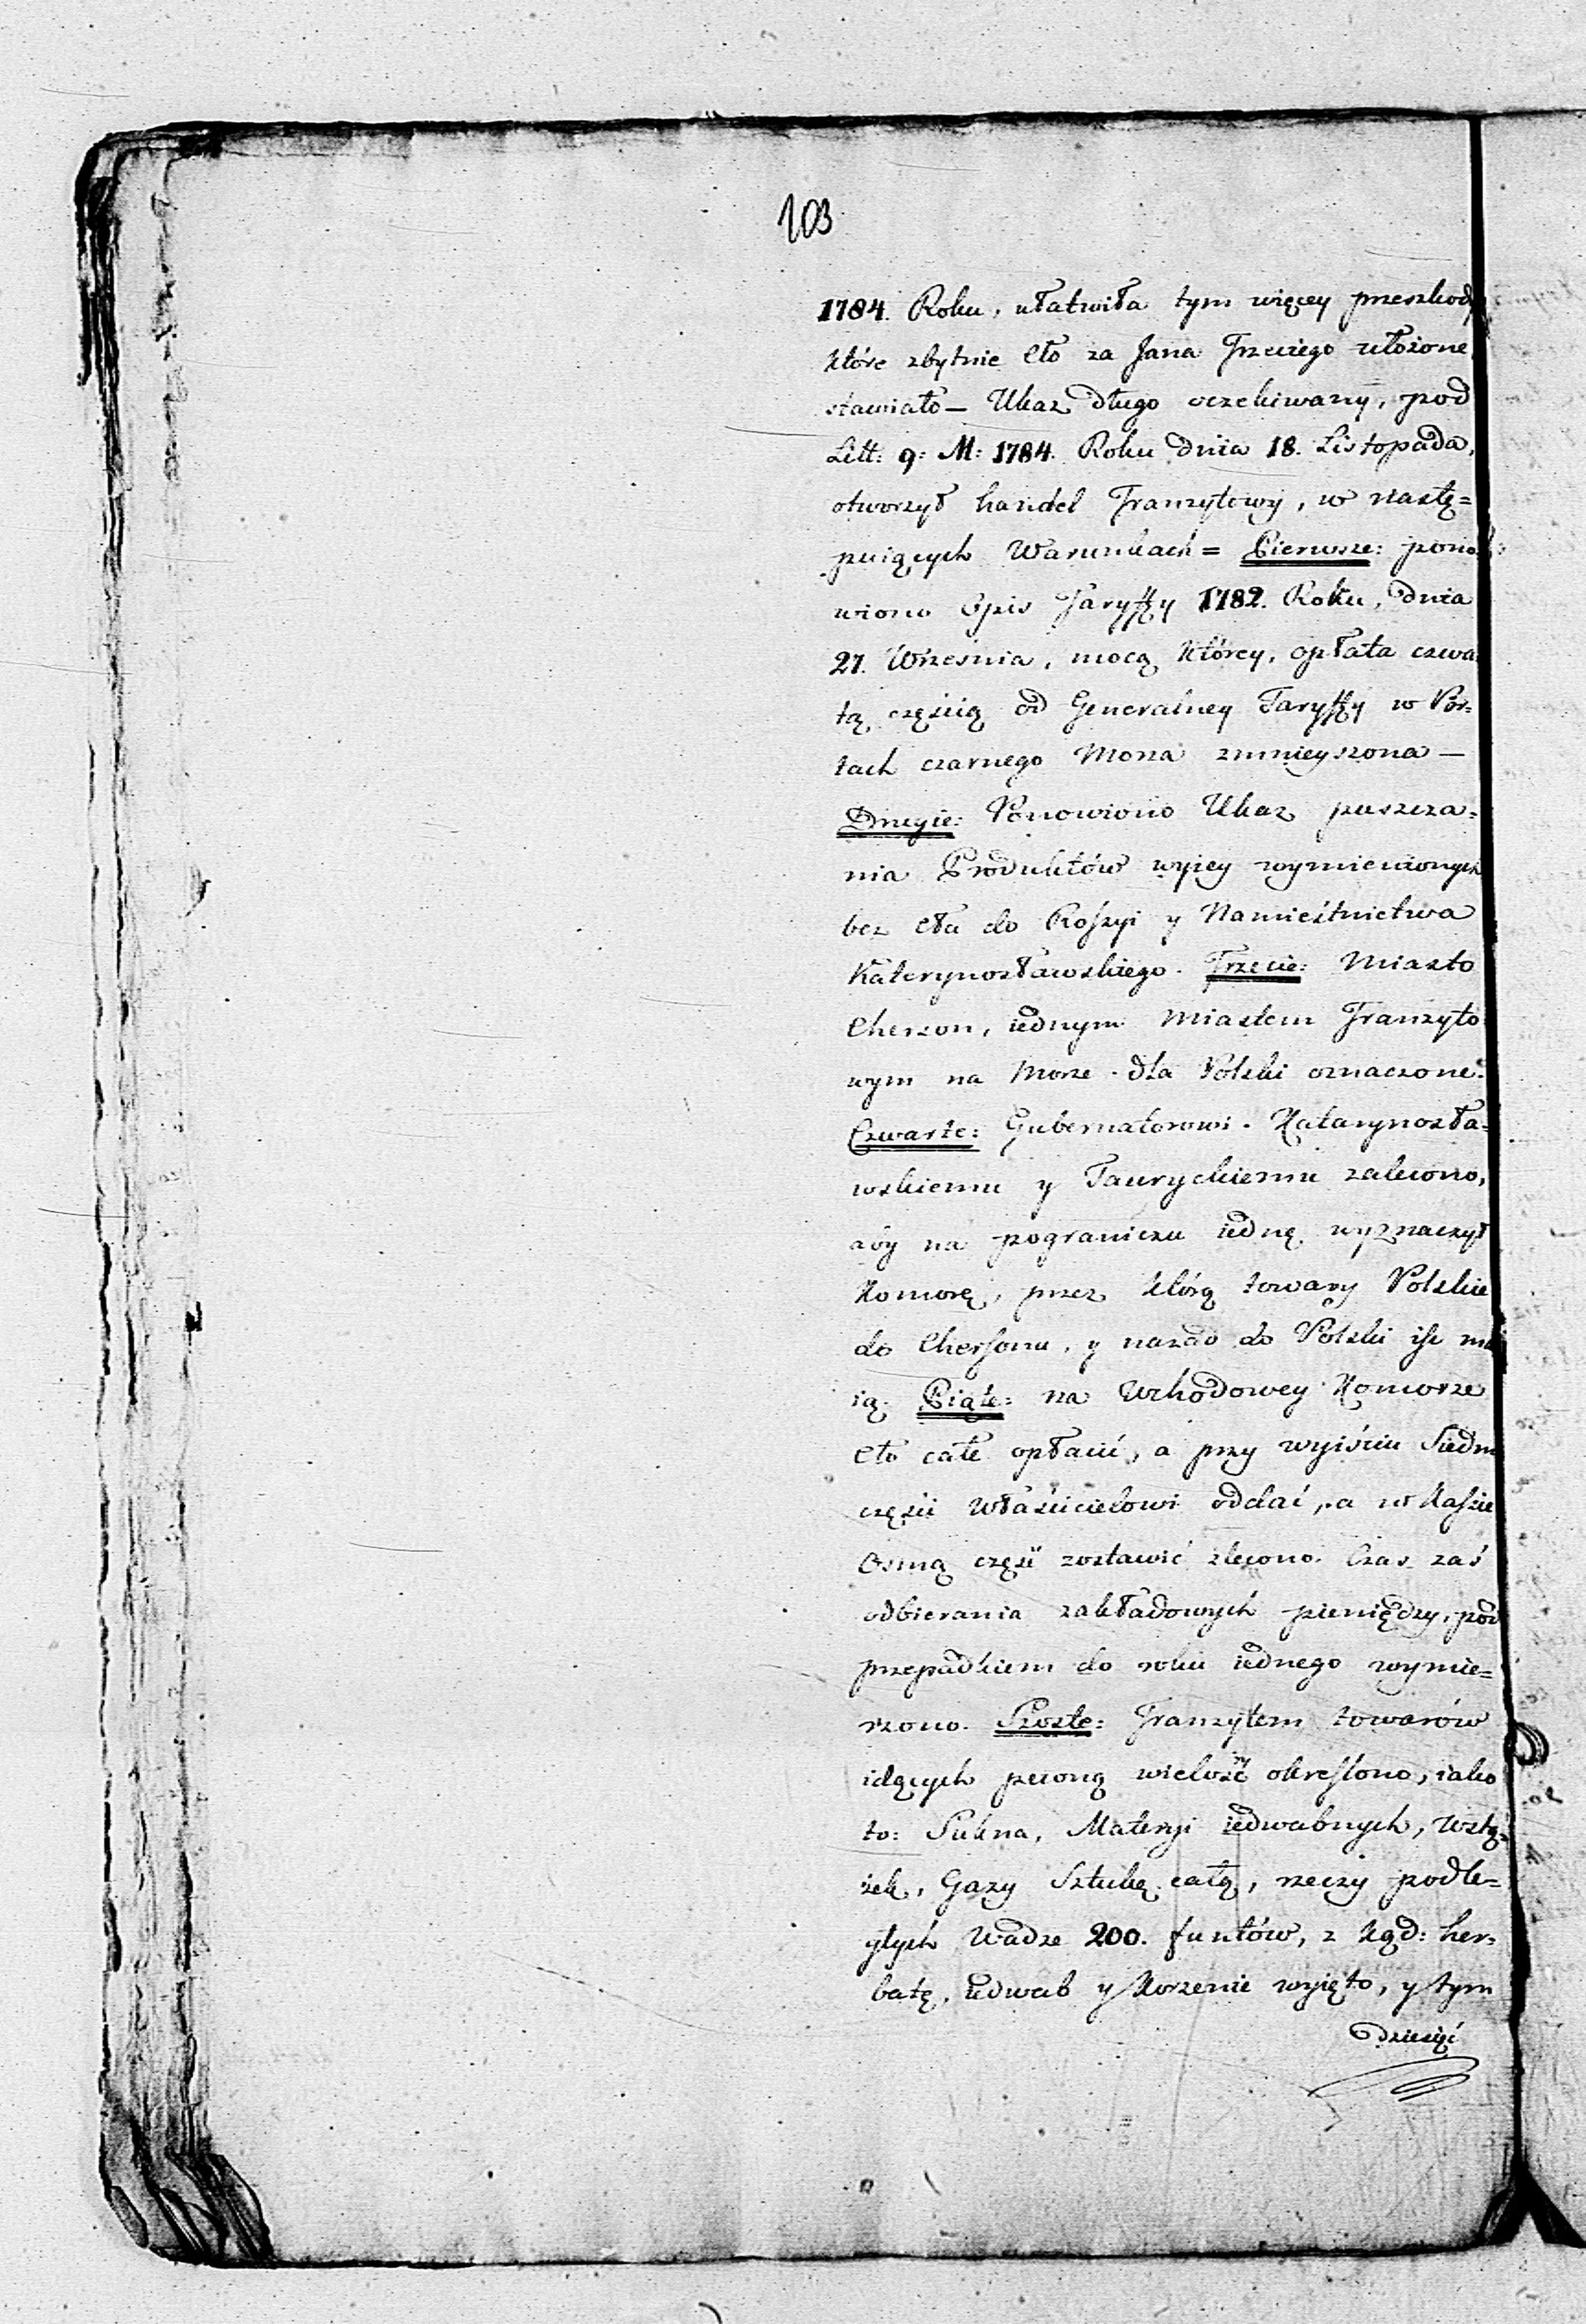 103
1784. Roku, ułatwiła tym więcey przeszkody
które zbytnie Cło za Jana Trzeciego ułożone
stawiało — Ukaz długo oczekiwany, pod
Litt: 9: M: 1784. Roku dnia 18. Listopada,
otworzył handel Tranzytowy, w nastę=
puiących Warunkach = Pierwsze: pono=
wiono Opis Taryffy 1782. Roku, dnia
27. Wrzesnia, mocą którey, opłata czwa
tą częścią od Generalney Taryffy w Por=
tach czarnego Morza zmnieyszona —
Drugie: Ponowiono Ukaz puszcza=
nia Produktów wyżey wymienionych
bez Cła do Roszyi y Namieśtnictwa
Katerynosławskiego. Trzecie: Miasto
Cherzon, iednym Miastem Tranzyto
wym na Morze dla Polski oznaczone.
Czwarte: Gubernatorowi Katarynosła=
wskiemu y Tauryckiemu zalecono,
aby na pograniczu iednę wyznaczył
Komorę, przez którą towary Polskie
do Chersonu, y nazad do Polski iść ma
ią. Piąte: na Wchodowey Komorze
Cło całe opłacić, a przy wyiściu Siedm
części Właścicielowi oddać, a w Kaśsie
Osmą część zostawić zlecono. Czas zaś
odbierania zakładowych pieniędzy, pod
przepadkiem do roku iednego wymie=
rzono. Szoste: Tranzytem towarów
idących pewną wielość okreslono, iako
to: Sukna, Materyi iedwabnych, Wstą=
żek, Gazy Sztukę całą, rzeczy podle=
głych Wadze 200. funtów, z kąd: her=
batę, iedwab y Korzenie wyięto, y tym
dziesięć